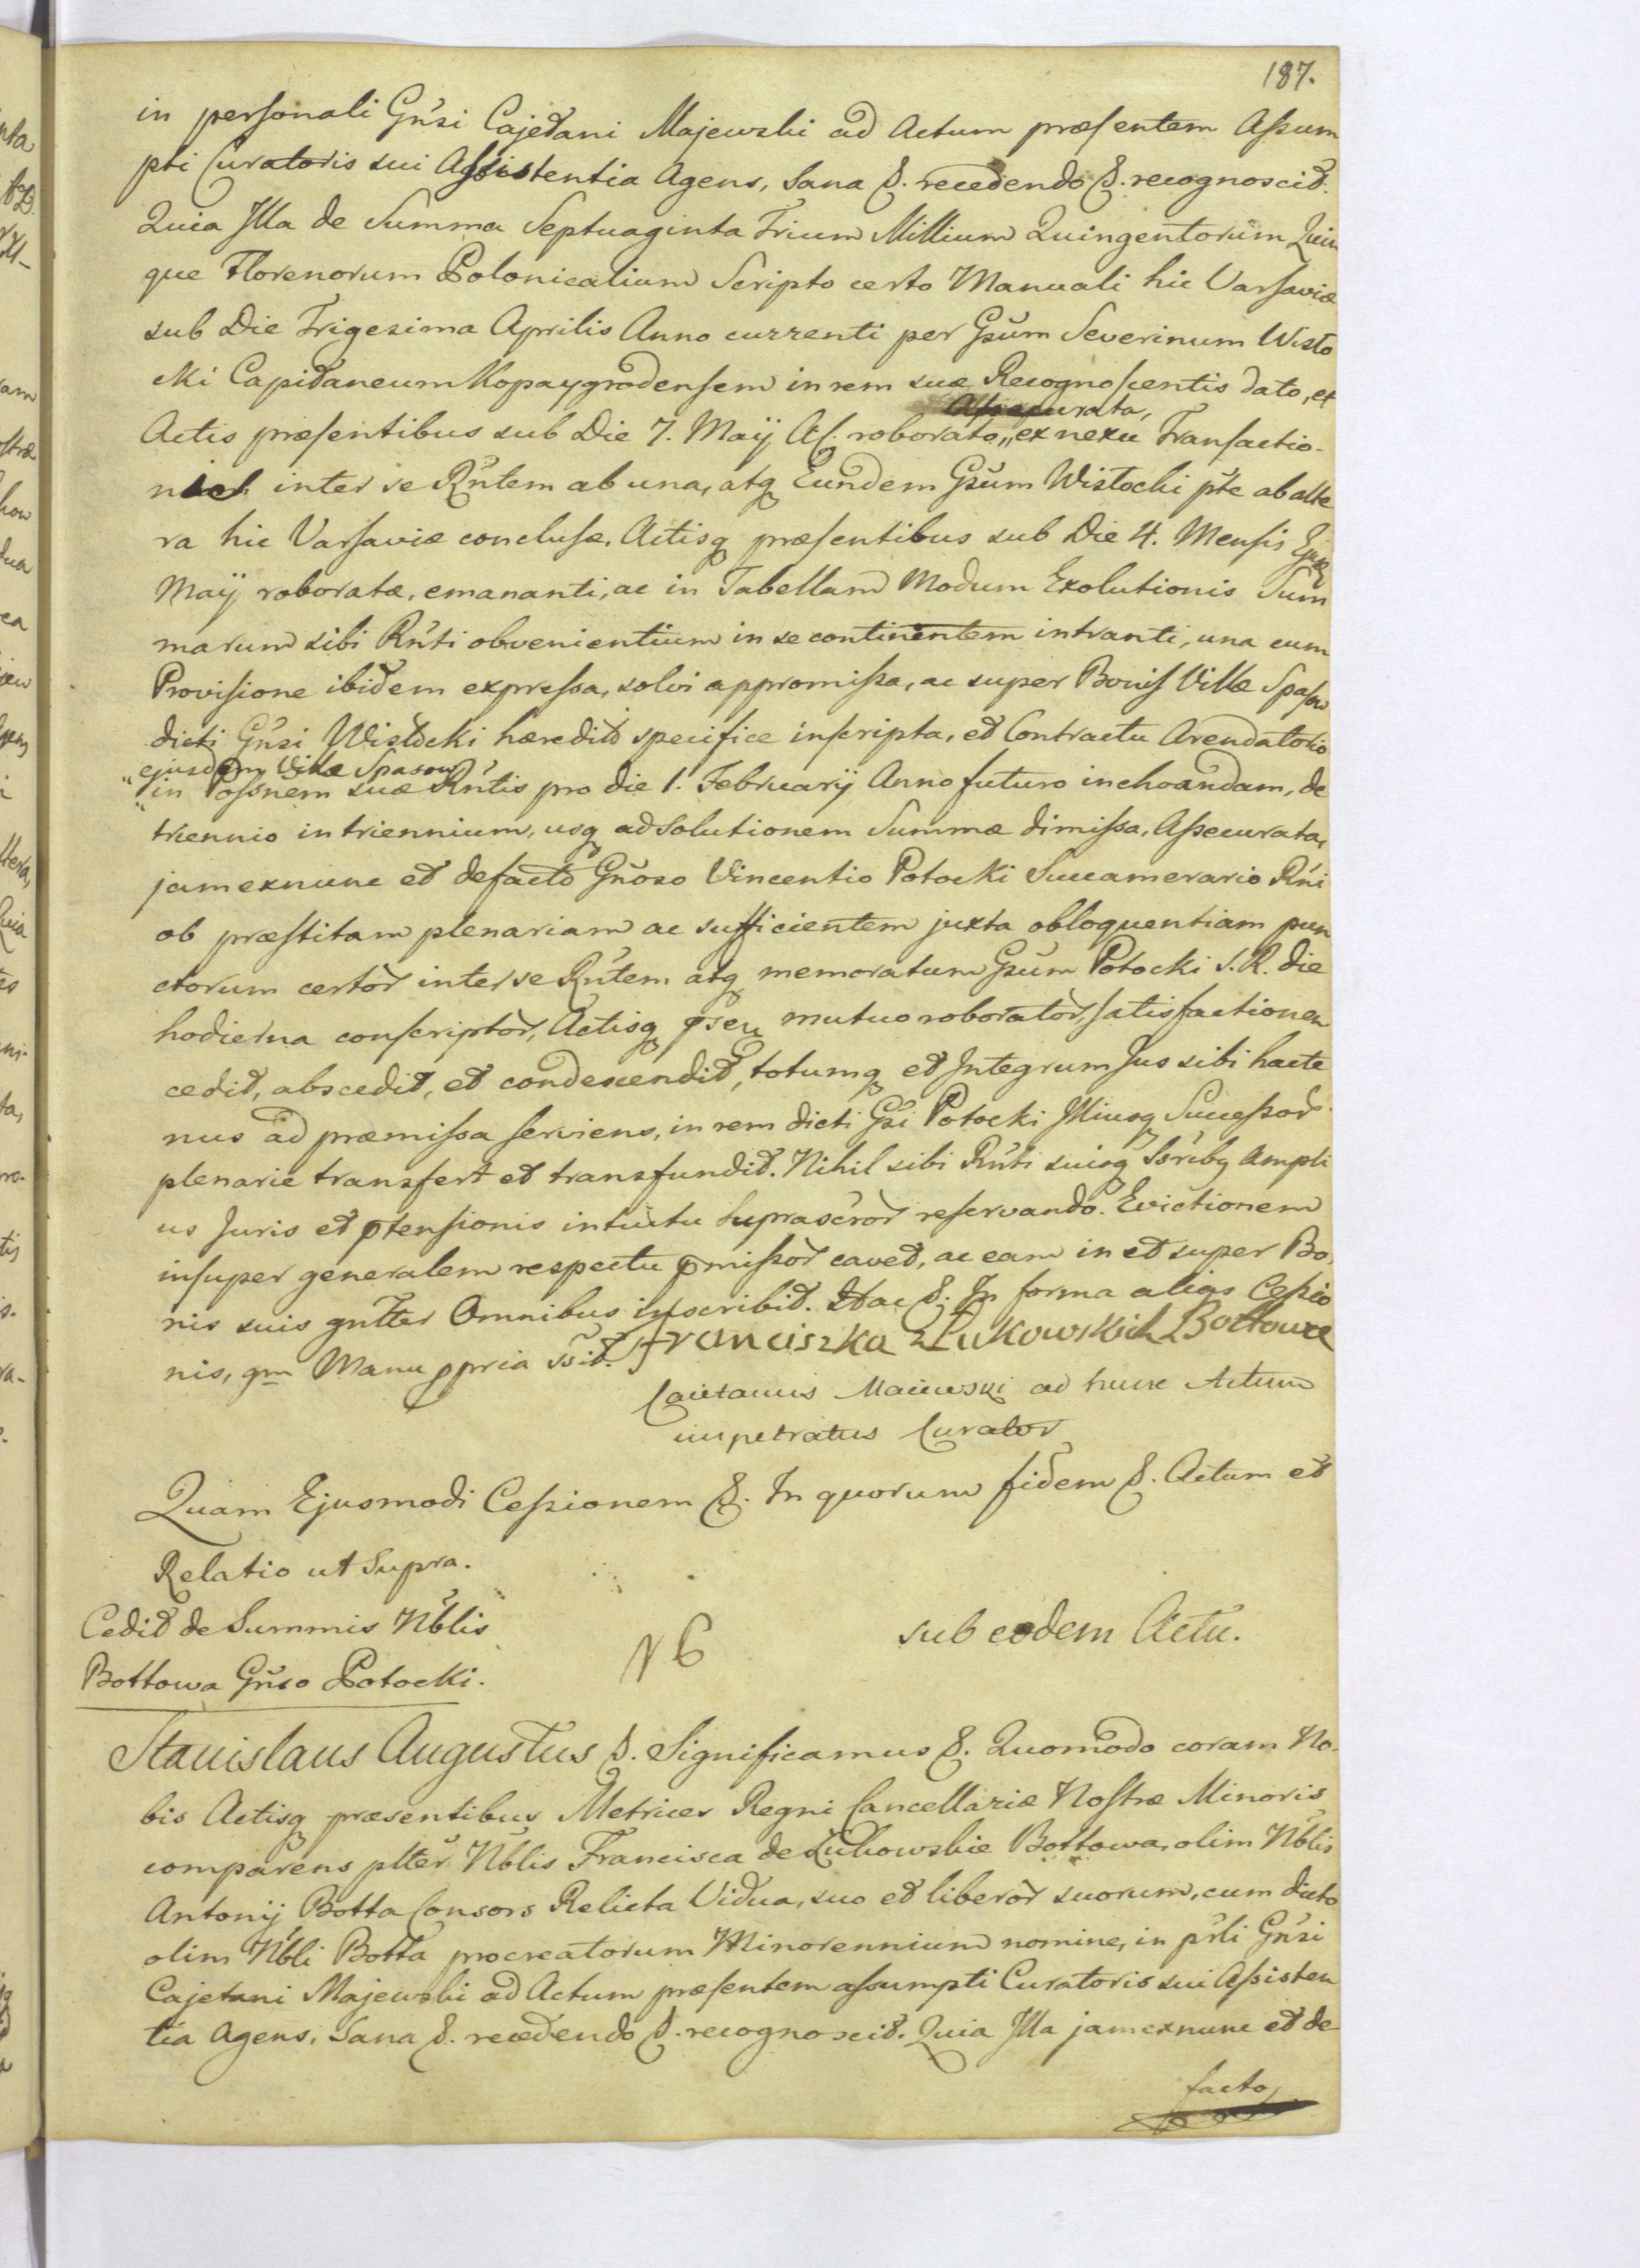 187.
in personali Gnsi Cajetani Majewski ad Actum præsentem Assum
pti Curatoris sui Assistentia Agens, Sana &. recedendo &. recognoscit.
Quia Illa de Summa Septuaginta Trium Millium Quingentorum Quin
que Florenorum Polonicalium Scripto certo Manuali hic Varsaviæ
sub Die Trigesima Aprilis Anno currenti per Gsum Severinum Wisło
cki Capitaneum Kopaygrodensem in rem suæ Recognoscentis dato, et
Assecurata,
Actis præsentibus sub Die 7. Maij roborato, „ex nexu Transactio-
nis inter se Rntem ab una, atq Eundem Gsum Wisłocki pte ab alte
ra hic Varsaviæ conclusæ, Actisq præsentibus sub Die 4. Mensis Ejusd
Maij roboratæ, emananti, ac in Tabellam Modum Exolutionis Sum
marum sibi Rnti obvenientium in se continentem intranti, una cum
Provisione ibidem expressa, solvi appromissa, ac super Bonis Villæ Spasow
dicti Gnsi Wisłocki hæredit specifice inscripta, et Contractu Arendatorio
„ejusdem Villæ Spasow
„in Possnem suæ Rntis pro die 1. Februarij Anno futuro inchoandam, de
triennio in triennium, usq ad Solutionem Summæ dimissa, Assecurata,
jam exnunc et defacto Gnoso Vincentio Potocki Succamerario Rni
ob præstitam plenariam ac sufficientem juxta obloquentiam pun
ctorum certor inter se Rntem atq memoratum Gsum Potocki S.R. die
hodierna conscriptor, Actisq mutuo roborator, satisfactionem
cedit, abscedit, et condescendit, totumq et Integrum Jus sibi hacte
nus ad præmissa serviens, in rem dicti Gsi Potocki Illiusq Successor
plenarie transfert et transfundit. Nihil sibi Rnti suisq Ssribq Ampli
us Juris et ptensionis intuitu suprascror reservando. Evictionem
insuper generalem respectu pmissor cavet, ac eam in et super Bo,
nis suis gnlter Omnibus inscribit. Hac &. In forma aligs Cessio
nis, qm Manu ppria ssit. Franciszka z Łukowskich Bottowa
Caietanus Maiewski ad hunc Actum
impetratus Curator
Quam Ejusmodi Cessionem &. In quorum fidem &. Actum et
Relatio ut Supra.
Cedit de Summis Nblis
Bottowa Gnso Potocki.
sub eodem Actu.
Stanislaus Augustus &. Significamus &. Quomodo coram No,
bis Actisq præsentibus Metrices Regni Cancellariæ Nostræ Minoris
comparens plter Nblis Francisca de Łukowskie Bottowa, olim Nblis
Antonij Botta Consors Relicta Vidua, suo et liberor suorum, cum dicto
olim Nbli Botta procreatorum Minorennium nomine, in prli Gnsi
Cajetani Majewski ad Actum præsentem assumpti Curatoris sui Assisten
tia Agens, Sana &. recedendo &. recognoscit. Quia Illa jam exnunc et de
facto